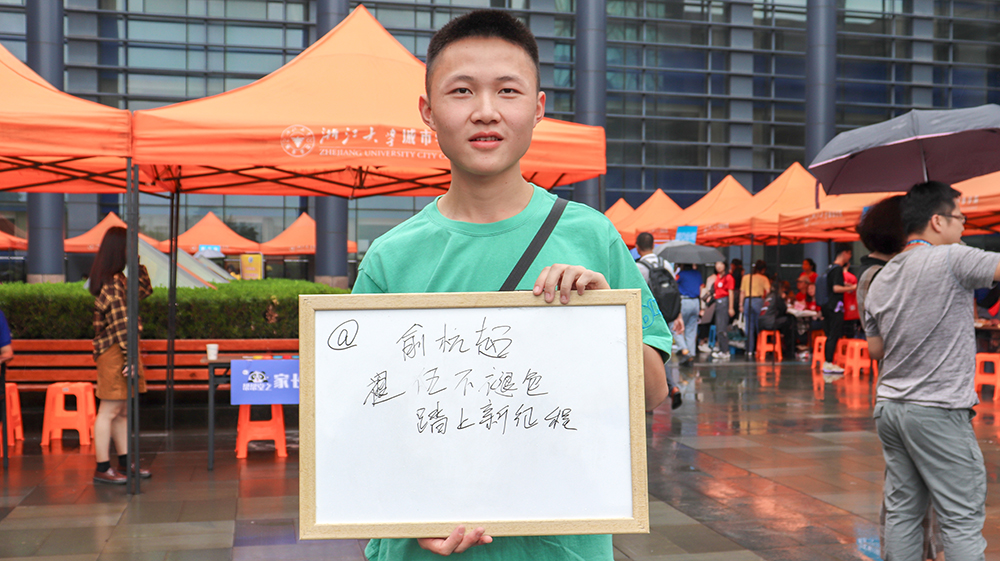 浙江大学城市
ZHEJIANG UNIVERSITY CITY
@ 俞杭超
退伍不褪色
踏上新征程
家